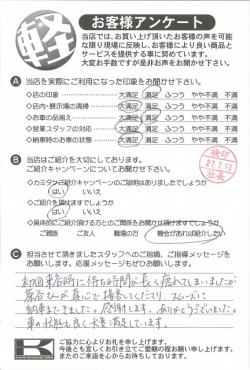 軽
お客様アンケート
当店では、お買い上げ頂いたお客様の声を可能
な限り現場に反映し、お客様により良い商品と
サービスを提供する事に努めています。
大変お手数ですが是非お声をお聞かせ下さい。
A 当店を実際にご利用になった印象をお聞かせ下さい。
◇店の印象 大満足 満足 ふつう やや不満 不満
◇店内・展示場の清掃 大満足 満足 ふつう やや不満 不満
◇お車の品揃え 大満足 満足 ふつう やや不満 不満
◇営業スタッフの対応 大満足 満足 ふつう やや不満 不満
◇納車時のお車の状態 大満足 満足 ふつう やや不満 不満
B 当店はご紹介を大切にしております。
ご紹介キャンペーンのご説明はありましたでしょうか
はい いいえ
◇ご紹介を頂けますでしょうか
はい いいえ
ご親戚 ご友人 職場の方 機会があれば紹介したい
検印
27.7.10
社長
C 担当させて頂きましたスタッフへのご指摘、ご指導メッセージを
お願いします。応援メッセージもぜひお願いします。
初回来店時に待ち時間が長く疲れてしまいましたが
納車まできました。感謝します。ありがとうございました。
車の状態も良く大変満足しています。
K
ご協力に心よりお礼を申し上げます。
今後とも宜しくお引き立てご愛顧の程お願い申し上げます。
またのご来店を心からお待ちしております。